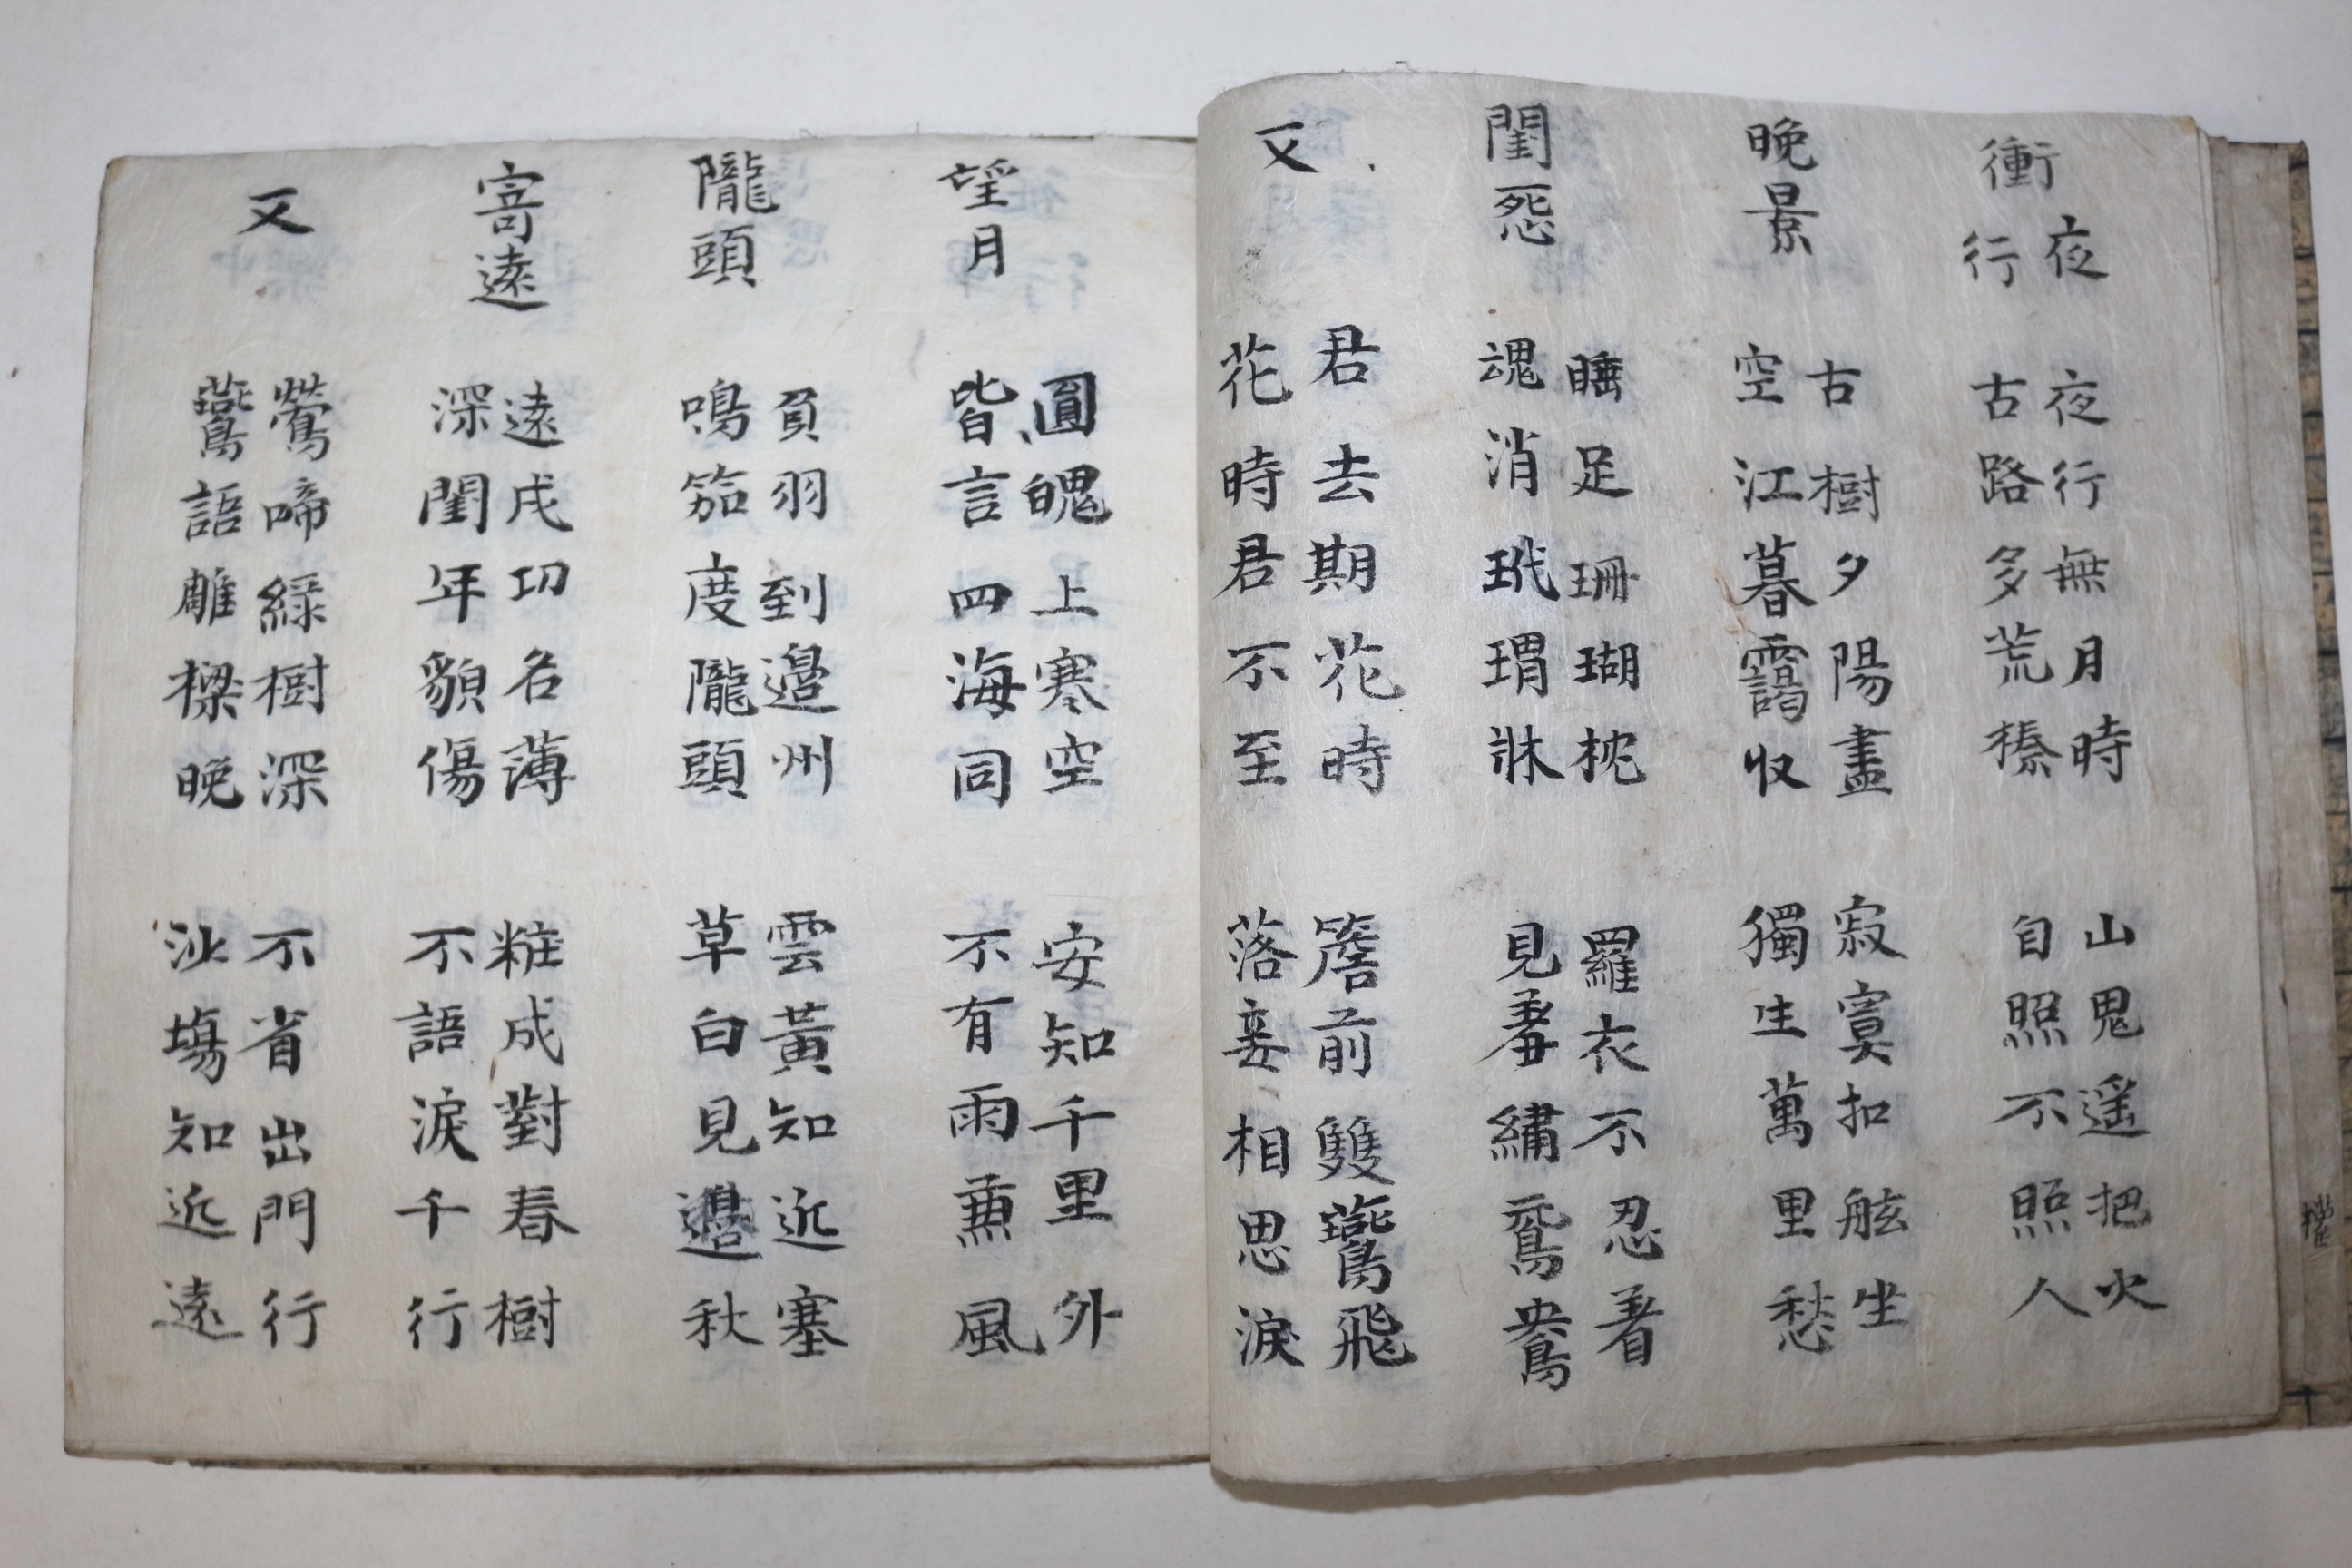 衝夜行
夜行無月時
古路多荒榛
山鬼遥把火
自照不照人
晚景
古樹夕陽盡
空江暮靄收
寂寞扣舷坐
獨生萬里愁
閨怨
睡足珊瑚枕
魂消玳瑁牀
羅衣不忍着
見羞繡鴛鴦
又
君去期花時
花時君不至
簷前雙鷰飛
落妾相思淚
望月
圓魄上寒空
皆言四海同
安知千里外
不有雨兼風
隴頭
負羽到邊州
鳴笳度隴頭
雲黃知近塞
草白見邊秋
寄遠
遠戍功名薄
深閨年貌傷
粧成對春樹
不語淚千行
又
鶯啼綠樹深
鷰語雕樑晚
不省出門行
沙塲知近遠